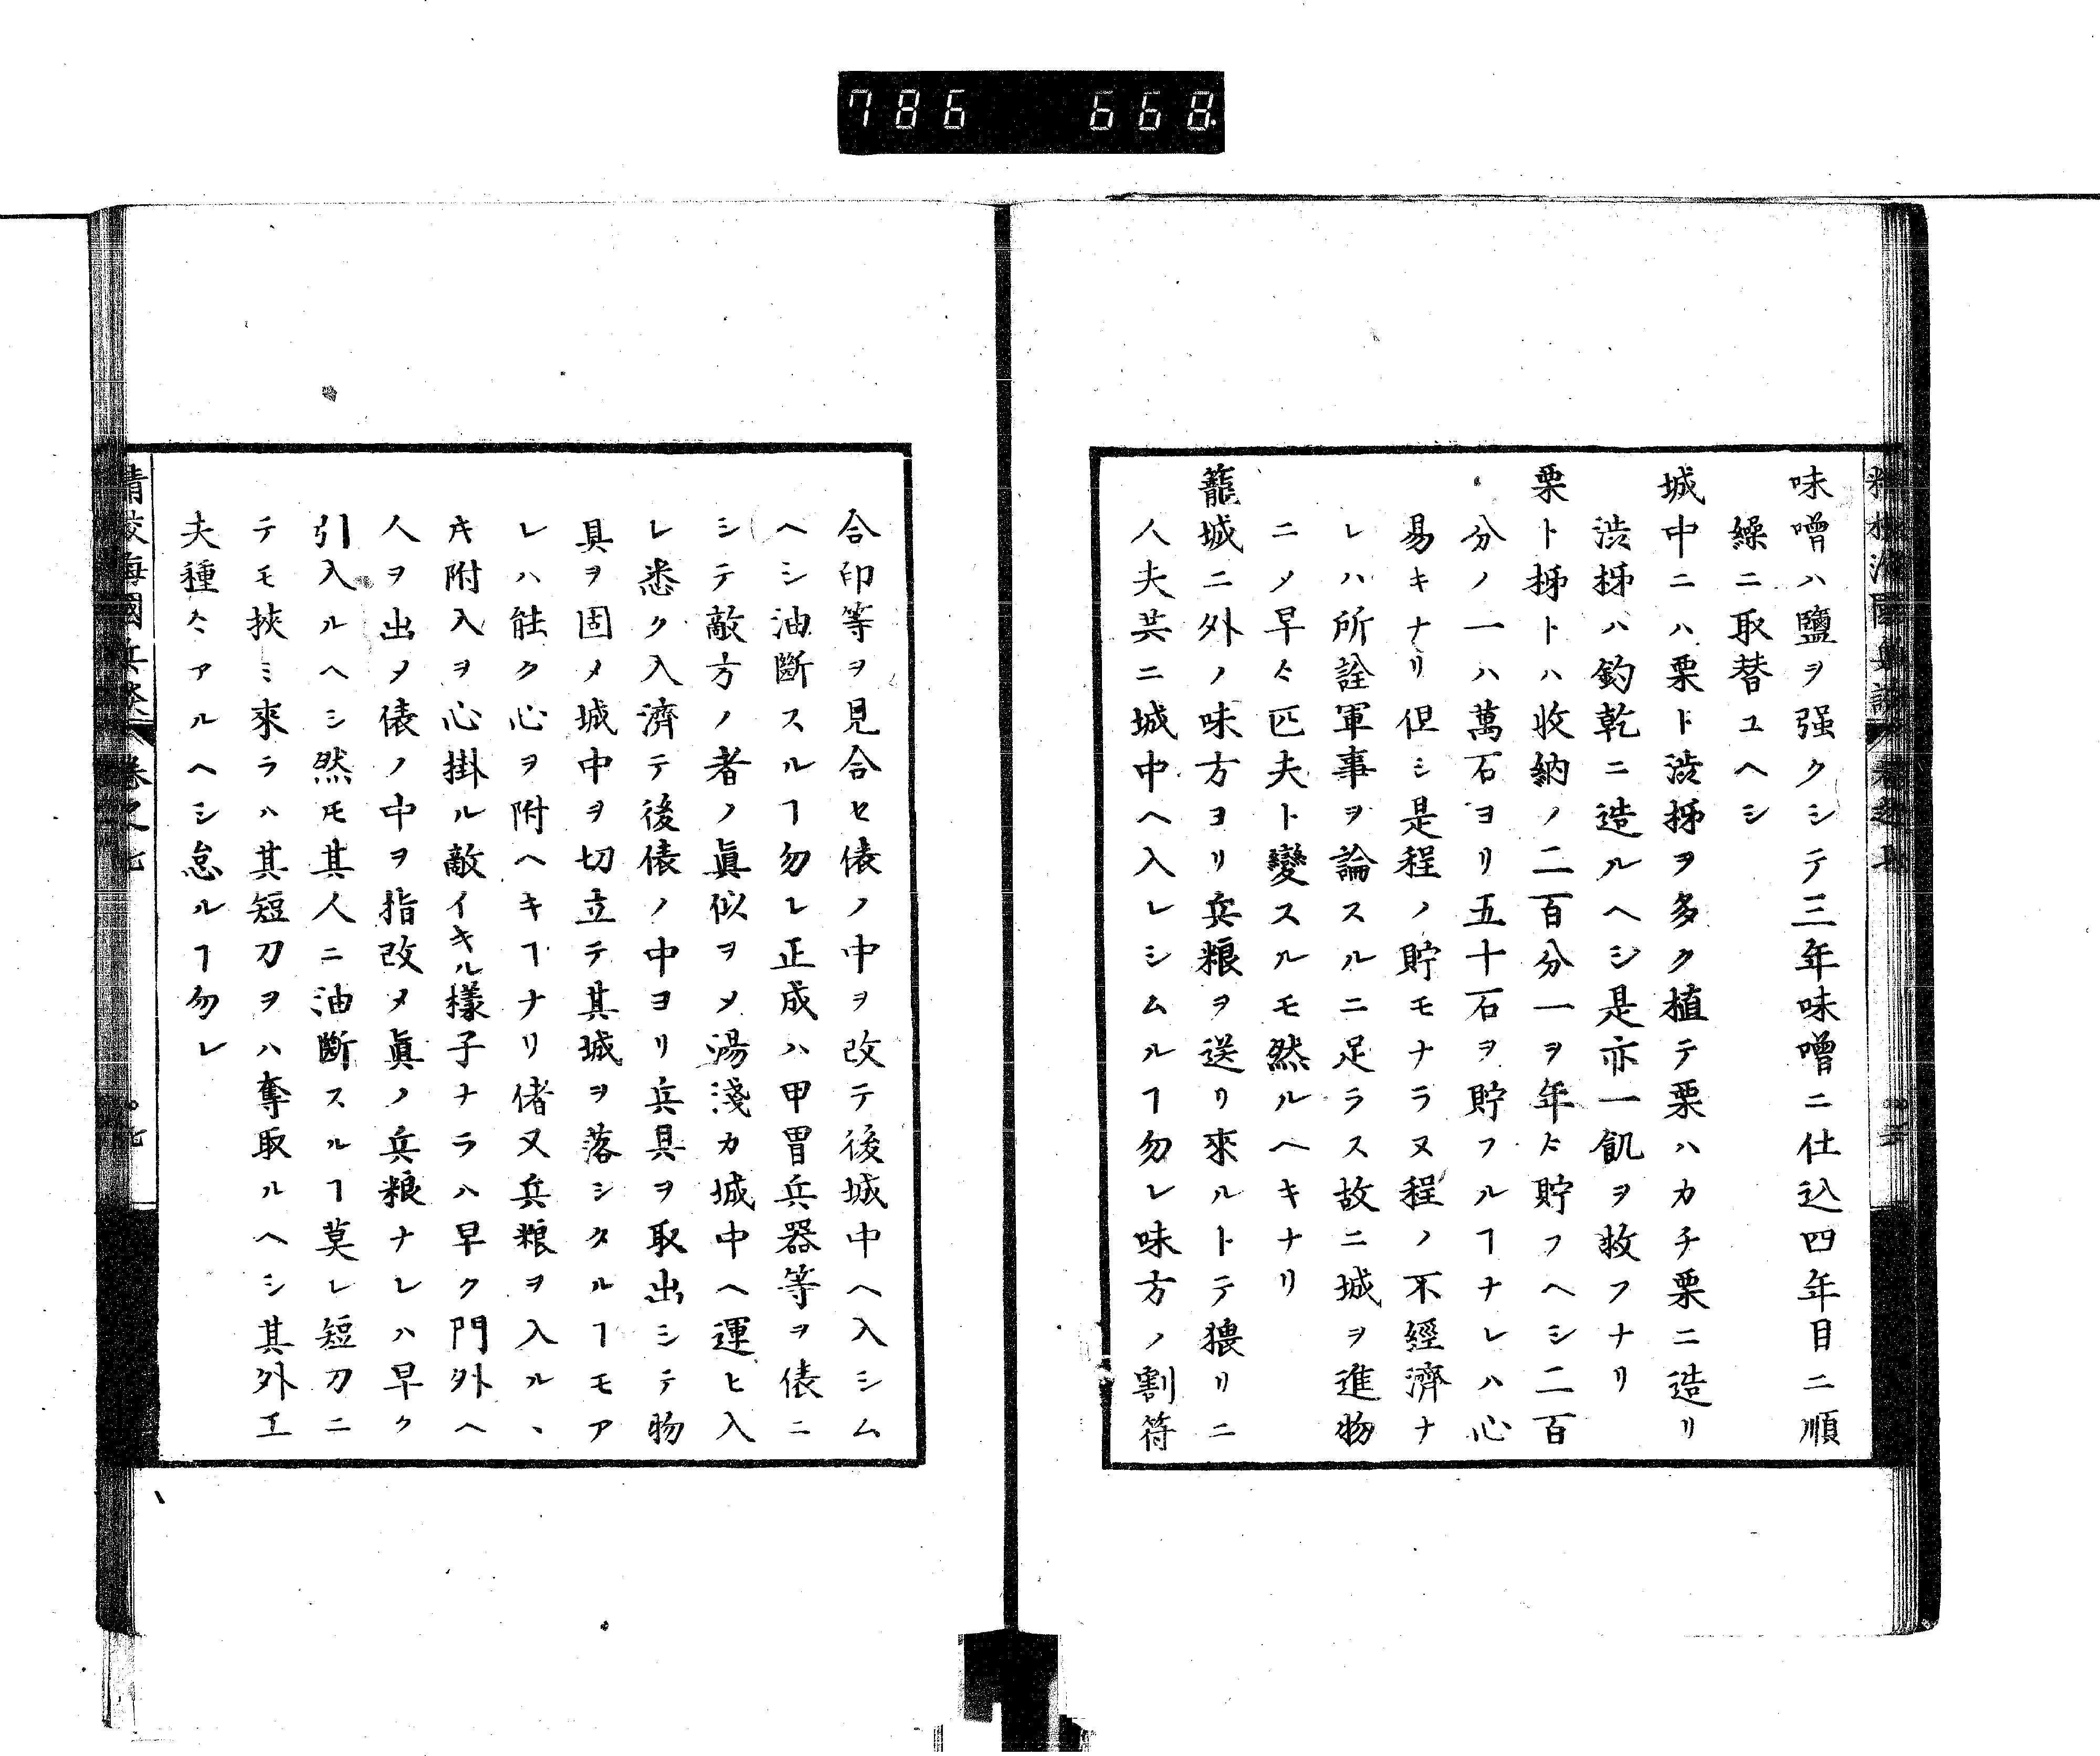 786 668
味噌ハ鹽ヲ强クシテ三年味噌ニ仕込四年目ニ順
繰ニ取替ユヘシ
城中ニハ栗ト渋柹ヲ多ク植テ栗ハカチ栗ニ造リ
渋柹ハ釣乾ニ造ルヘシ是亦一飢ヲ救フナリ
栗ト柹トハ收納ノ二百分一ヲ年〻貯フヘシ二百
分ノ一ハ萬石ヨリ五十石ヲ貯フルヿナレハ心
易キナリ但シ是程ノ貯モナラヌ程ノ不經濟ナ
レハ所詮軍事ヲ論スルニ足ラス故ニ城ヲ進物
ニメ早〻匹夫ト變スルモ然ルヘキナリ
籠城ニ外ノ味方ヨリ兵粮ヲ送リ來ルトテ猥リニ
人夫共ニ城中ヘ入レシムルヿ勿レ味方ノ割符
合印等ヲ見合セ俵ノ中ヲ改テ後城中ヘ入シム
ヘシ油斷スルヿ勿レ正成ハ甲冑兵器等ヲ俵ニ
シテ敵方ノ者ノ眞似ヲメ湯淺カ城中ヘ運ヒ入
レ悉ク入濟テ後俵ノ中ヨリ兵具ヲ取出シテ物
具ヲ固メ城中ヲ切立テ其城ヲ落シタルヿモア
レハ能ク心ヲ附ヘキヿナリ偖又兵粮ヲ入ル、
キ附入ヲ心掛ル敵イキル樣子ナラハ早ク門外ヘ
人ヲ出メ俵ノ中ヲ指改メ眞ノ兵粮ナレハ早ク
引入ルヘシ然モ其人ニ油斷スルヿ莫レ短刀ニ
テモ挾ミ來ラハ其短刀ヲハ奪取ルヘシ其外工
夫種〻アルヘシ怠ルヿ勿レ
精校海國兵談 卷之七